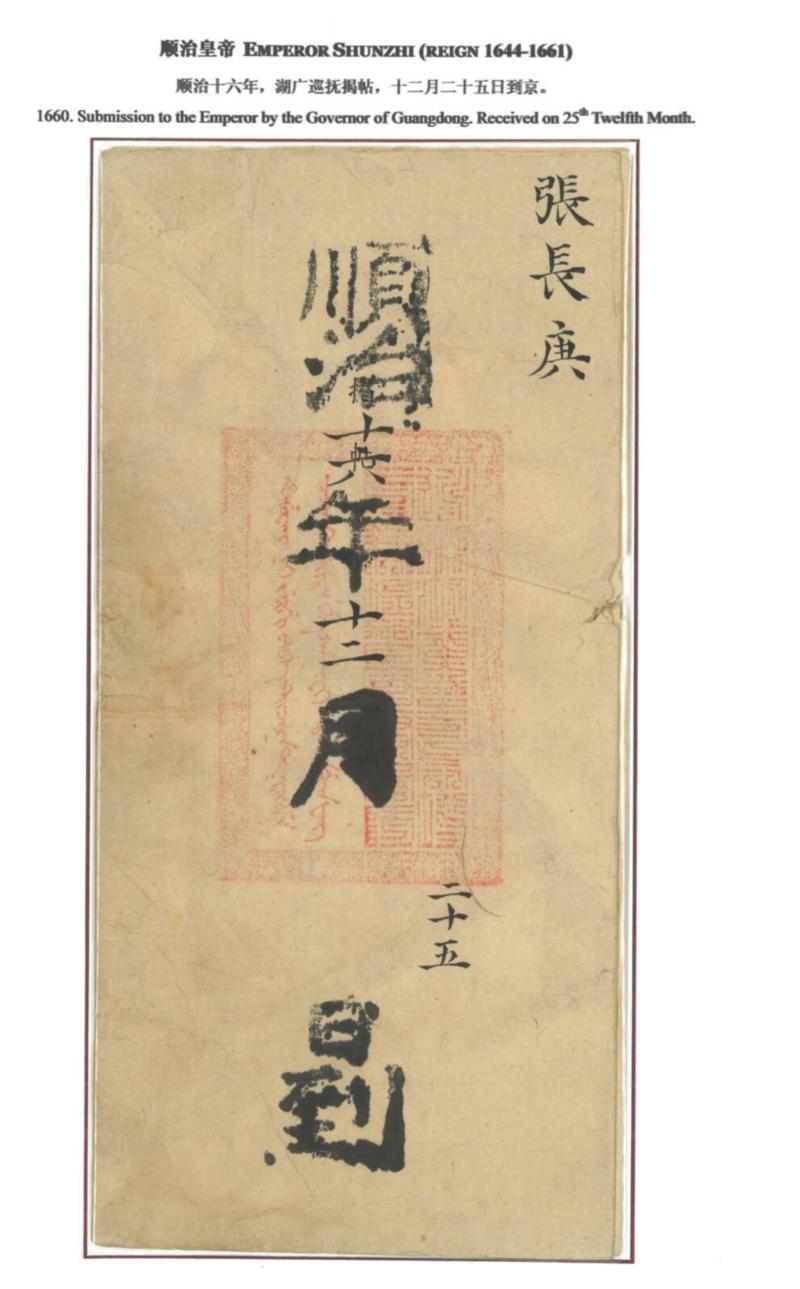 顺治皇帝 EMPEROR SHUNZHI (REIGN 1644-1661)
顺治十六年，湖广巡抚揭帖，十二月二十五日到京。
1660. Submission to the Emperor by the Governor of Guangdong. Received on 25th Twelfth Month.
張長庚
順治十六年十二月二十五日到
揭帖